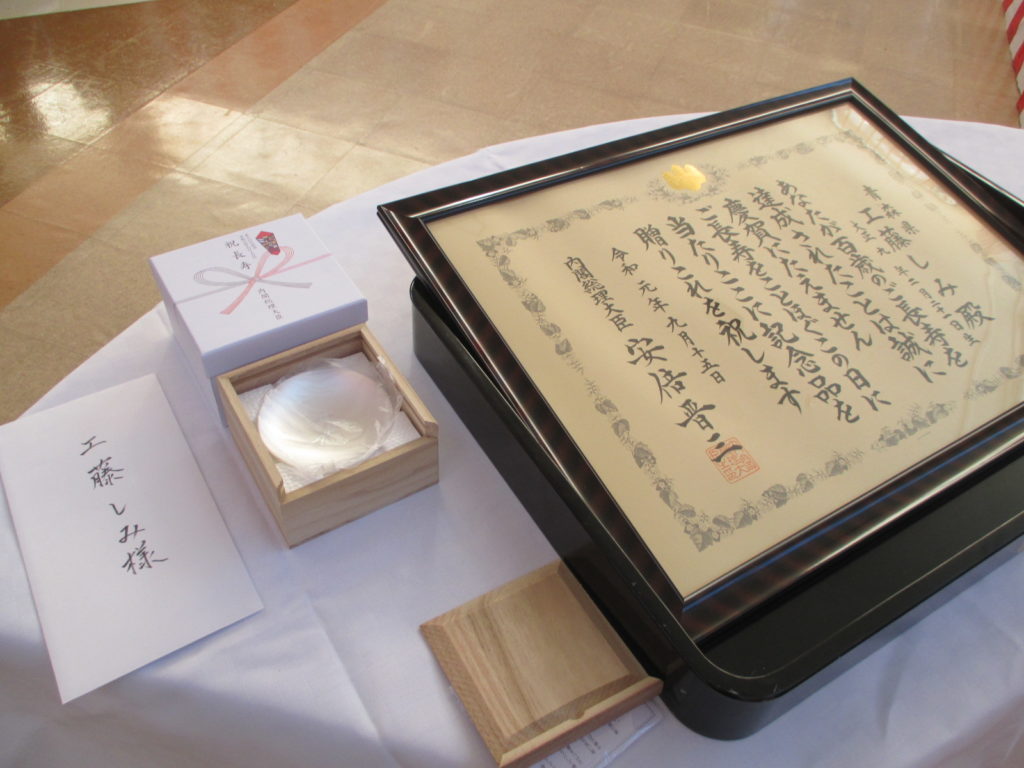 青森県
工藤しみ殿
あなたが百歳のご長寿を
達成されたことは誠に
慶賀にたえません
ご長寿をことほぐこの日に
当たりここに記念品を
贈りこれを祝します
令和元年九月十五日
内閣総理大臣 安倍晋三
祝長寿
内閣総理大臣
工藤しみ様